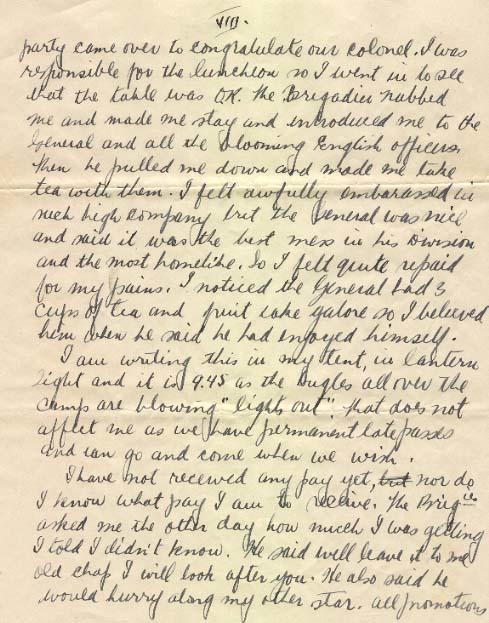 VIII.
party came over to congratulate our colonel. I was
responsible for the luncheon so I went in to see
that the table was O.K. The Brigadier nabbed
me and made me stay and introduced me to the
General and all the blooming English officers.
Then he pulled me down and made me take
tea with them. I felt awfully embarassed in
such high company but the General was nice
and said it was the best mess in his Division
and the most homelike. So I felt quite repaid
for my pains. I noticed the General had 3
cups of tea and fruit cake galore so I believed
him when he said he had enjoyed himself.
I am writing this in my tent, in lantern
light and it is 9.45 as the Bugles all over the
camp are blowing "lights out". That does not
affect me as we have permanent late passes
and can go and come when we wish.
I have not received any pay yet, but nor do
I know what pay I am to receive. The Brig
asked me the other day how much I was getting
I told I didn't know. He said will leave it to me
old chap I will look after you. He also said he
would hurry along my other star. All promotions